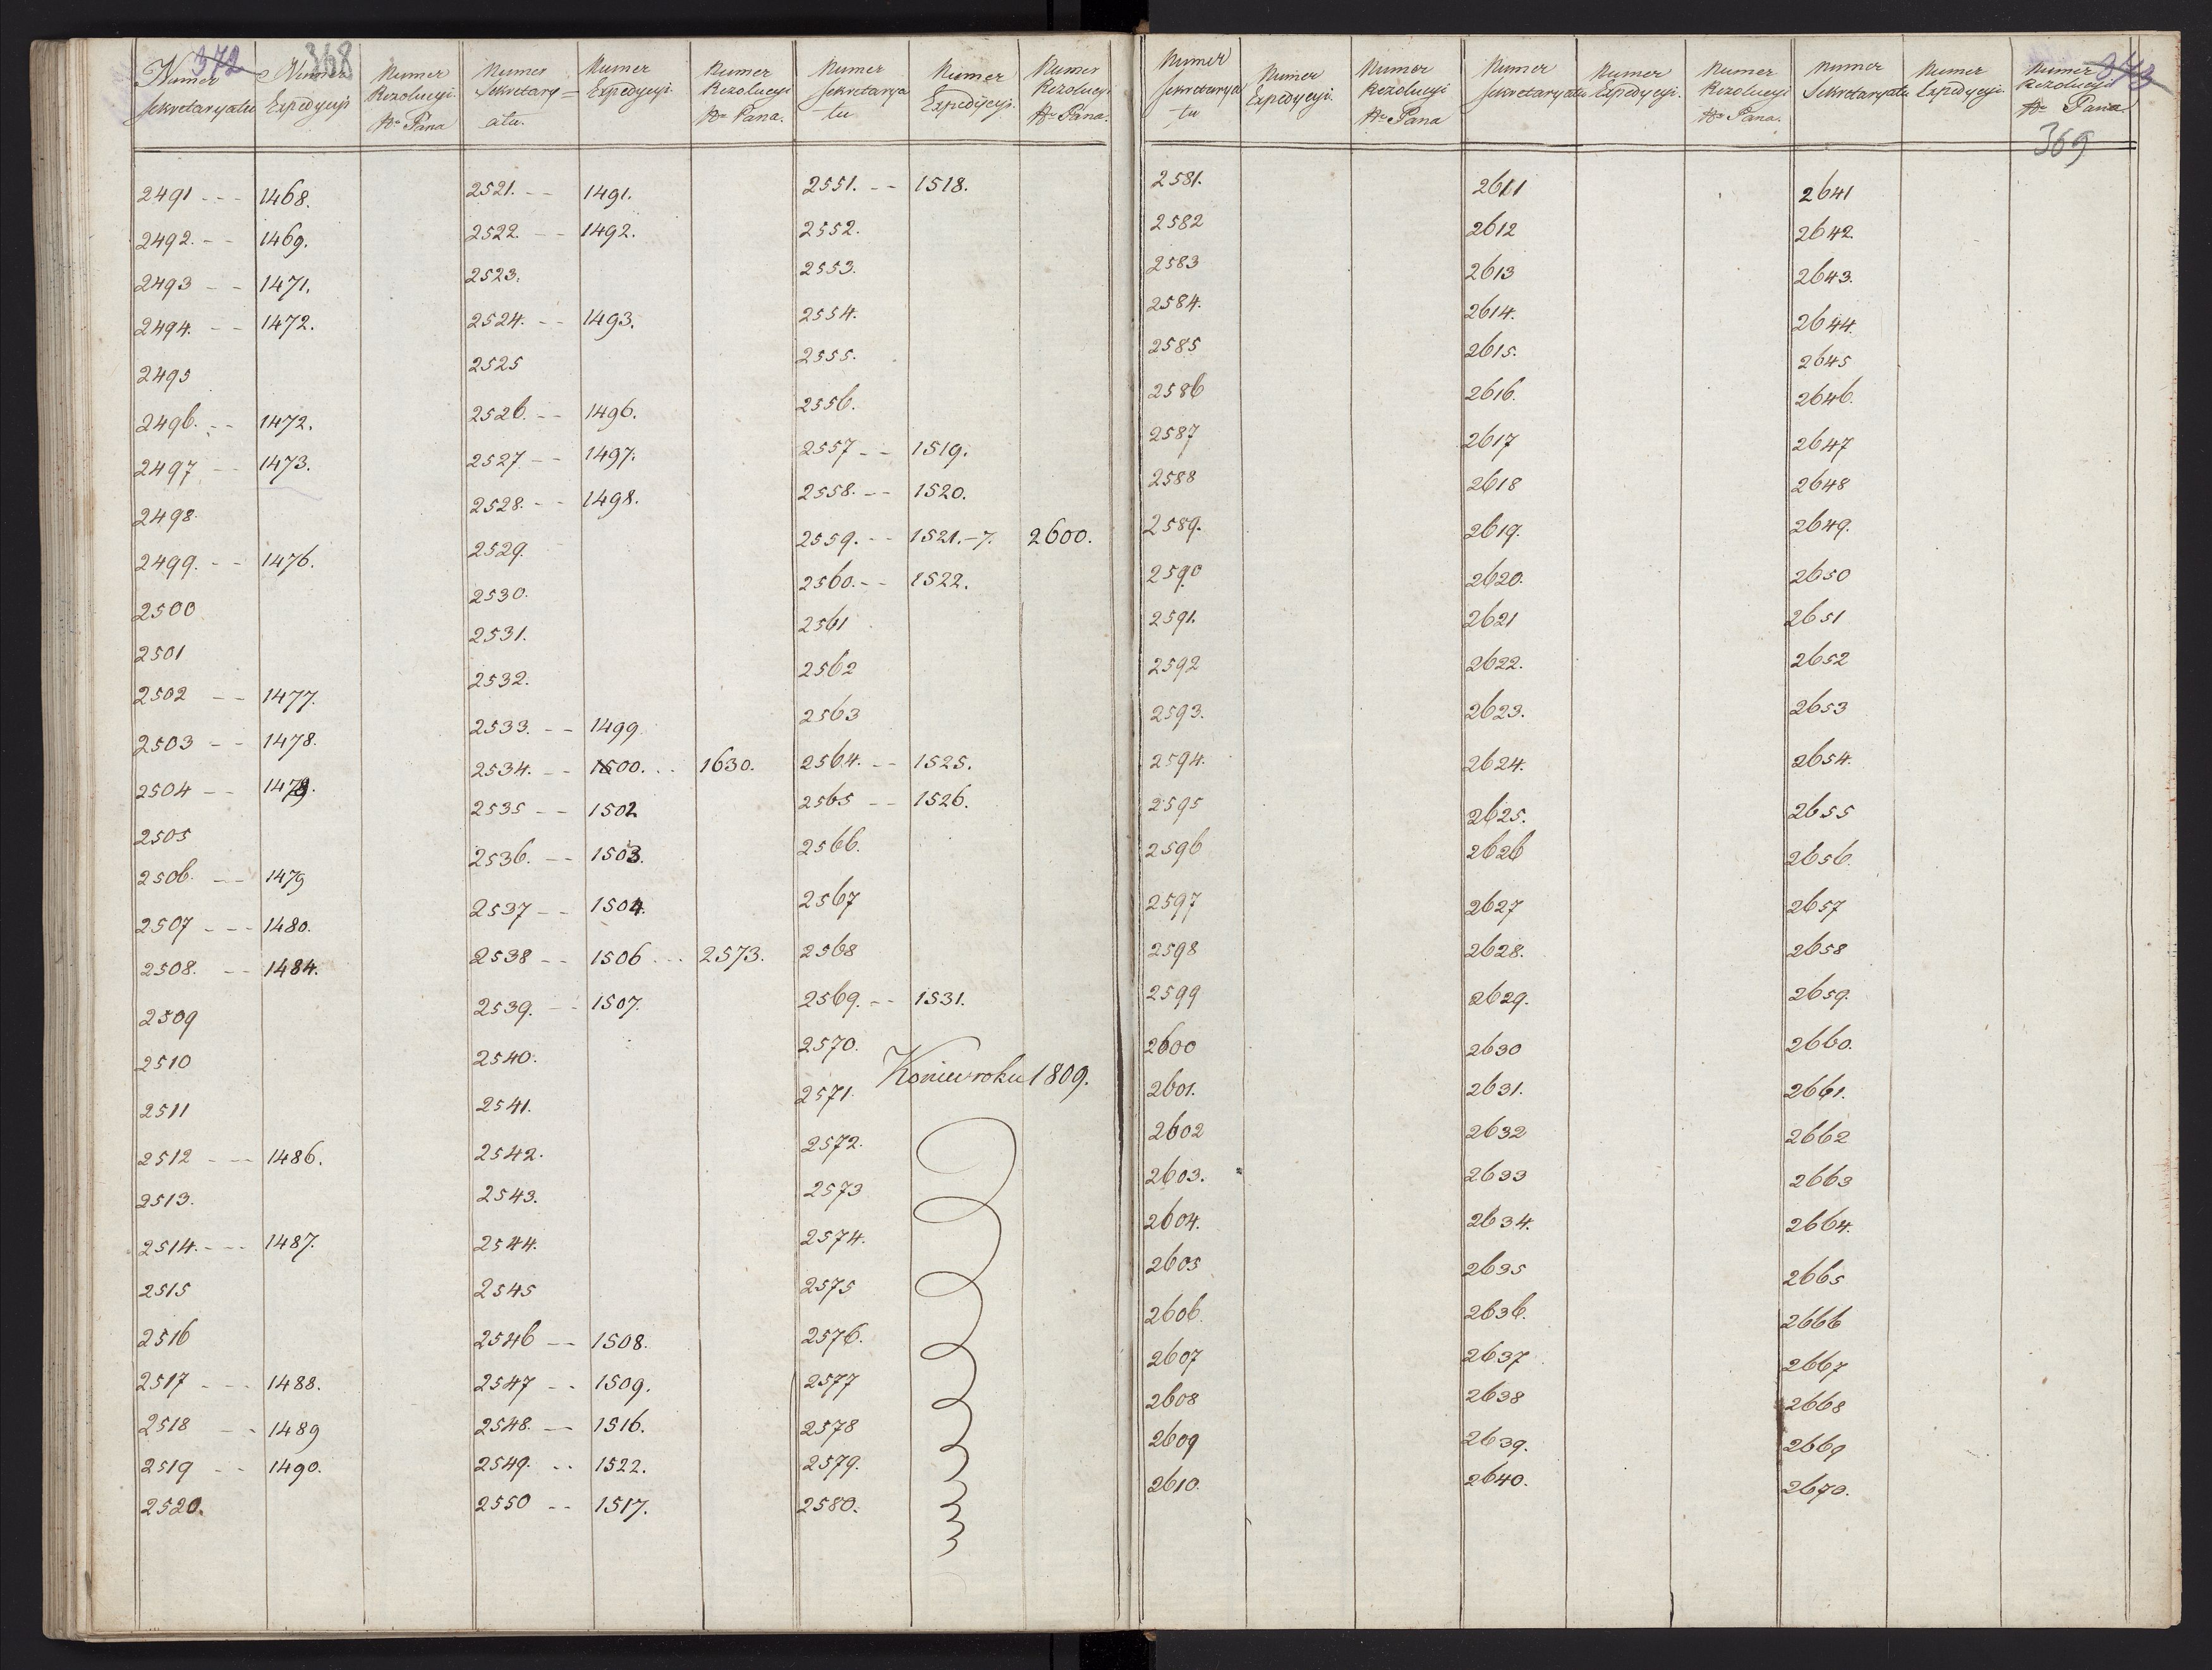 372 368
Numer Sekretaryatu Numer Expedycyi Numer Rezolucyi Pana Numer Sekretary=atu. Numer Expedycyi. Numer Rezolucyi Pana. Numer Sekretarya-tu Numer Expedycyi. Numer Rezolucyi Pana.
2491 - - - 1468.
2492. - - 1469.
2493 - - 1471.
2494. - - 1472.
2495
2496. - - 1472.
2497 - - 1473.
2498.
2499. - - 1476.
2500
2501
2502 - - 1477.
2503 - - 1478.
2504 - - 1478.
2505
2506. - - 1479
2507 - - - 1480.
2508. - - 1484.
2509
2510
2511
2512 - - - 1486.
2513.
2514. - - - 1487.
2515
2516
2517 - - - 1488.
2518 - - 1489
2519 - - 1490.
2520.
2521. - - 1491.
2522. - - 1492.
2523.
2524. - - 1493.
2525
2526. - - 1496.
2527. - - 1497.
2528. - - 1498.
2529.
2530.
2531.
2532.
2533. - - 1499.
2534. - - 1500. . . 1630.
2535 - - 1502
2536. - - 1503.
2537 - - 1504.
2538 - - 1506 . . . 2573.
2539. - - 1507.
2540.
2541.
2542.
2543.
2544.
2545
2546 - - 1508.
2547 - - 1509.
2548. - - 1516.
2549. . . 1522.
2550 - - 1517.
2551. - - 1518.
2552.
2553.
2554.
2555.
2556.
2557 - - 1519.
2558. - - 1520.
2559. - - 1521.-7. 2600.
2560. - - 1522.
2561
2562
2563
2564. - - 1525.
2565 - - 1526.
2566.
2567
2568
2569. - - 1531.
2570.
Koniec roku 1809.
2571.
2572.
2573
2574.
2575
2576.
2577
2578
2579.
2580.
373
369
Numer Sekretarya-tu Numer Expedycyi. Numer Rezolucyi Pana Numer Sekretaryatu Numer Expedycyi. Numer Rezolucyi Pana. Numer Sekretaryatu Numer Expedycyi. Numer Rezolucyi Pana
2581.
2582
2583
2584.
2585
2586
2587
2588
2589.
2590
2591.
2592
2593.
2594.
2595
2596
2597
2598
2599
2600
2601.
2602
2603.
2604.
2605
2606.
2607
2608
2609
2610.
2611
2612
2613
2614.
2615.
2616.
2617
2618
2619.
2620.
2621
2622.
2623.
2624.
2625.
2626
2627
2628.
2629.
2630
2631.
2632
2633
2634.
2635
2636.
2637
2638
2639.
2640.
2641
2642.
2643.
2644.
2645
2646.
2647
2648
2649.
2650
2651
2652
2653
2654.
2655
2656.
2657
2658
2659.
2660.
2661.
2662
2663
2664.
2665
2666
2667
2668
2669
2670.